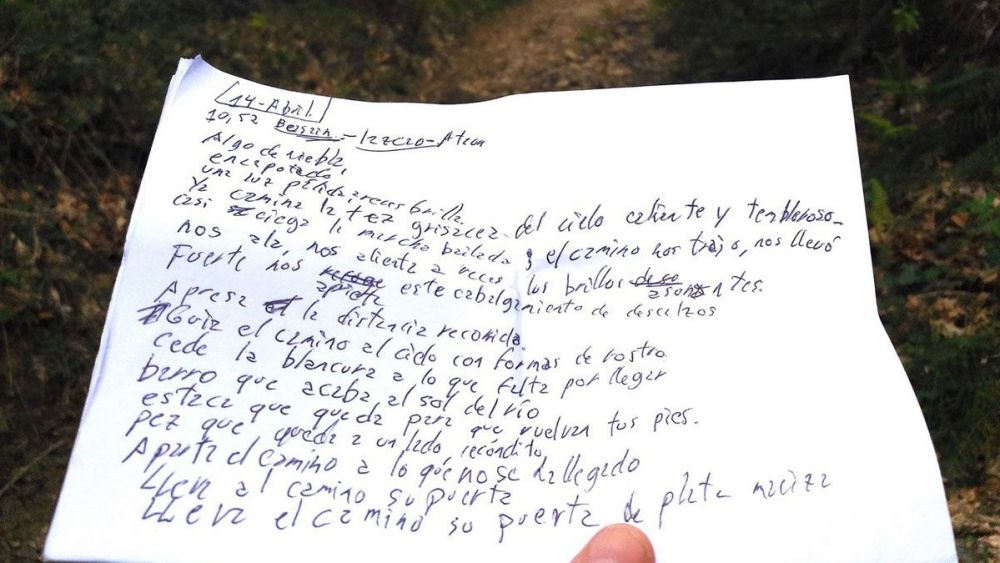 14-Abril.
10,52 Beasain - Lazcao - Ataun
Algo de niebla,
encapotado,
una luz pálida a veces brilla.
Ya camina la tez grisácea del cielo caliente y tembloroso
casi ciega la marcha bailada y el camino nos trajo, nos llevó
nos ala, nos alienta a veces los brillos asonantes.
Fuerte nos aprieta este cabalgamiento de descalzos
Apresa la distancia recorrida
Guia el camino al cielo con formas de rostro
cede la blancura a lo que falta por llegar
barro que acaba al sol del río
estaca que queda para que vuelvan tus pies.
pez que queda a un lado, recóndito,
Aparta el camino a lo que no se ha llegado
Lleva al camino su puerta
Lleva el camino su puerta de plata maciza